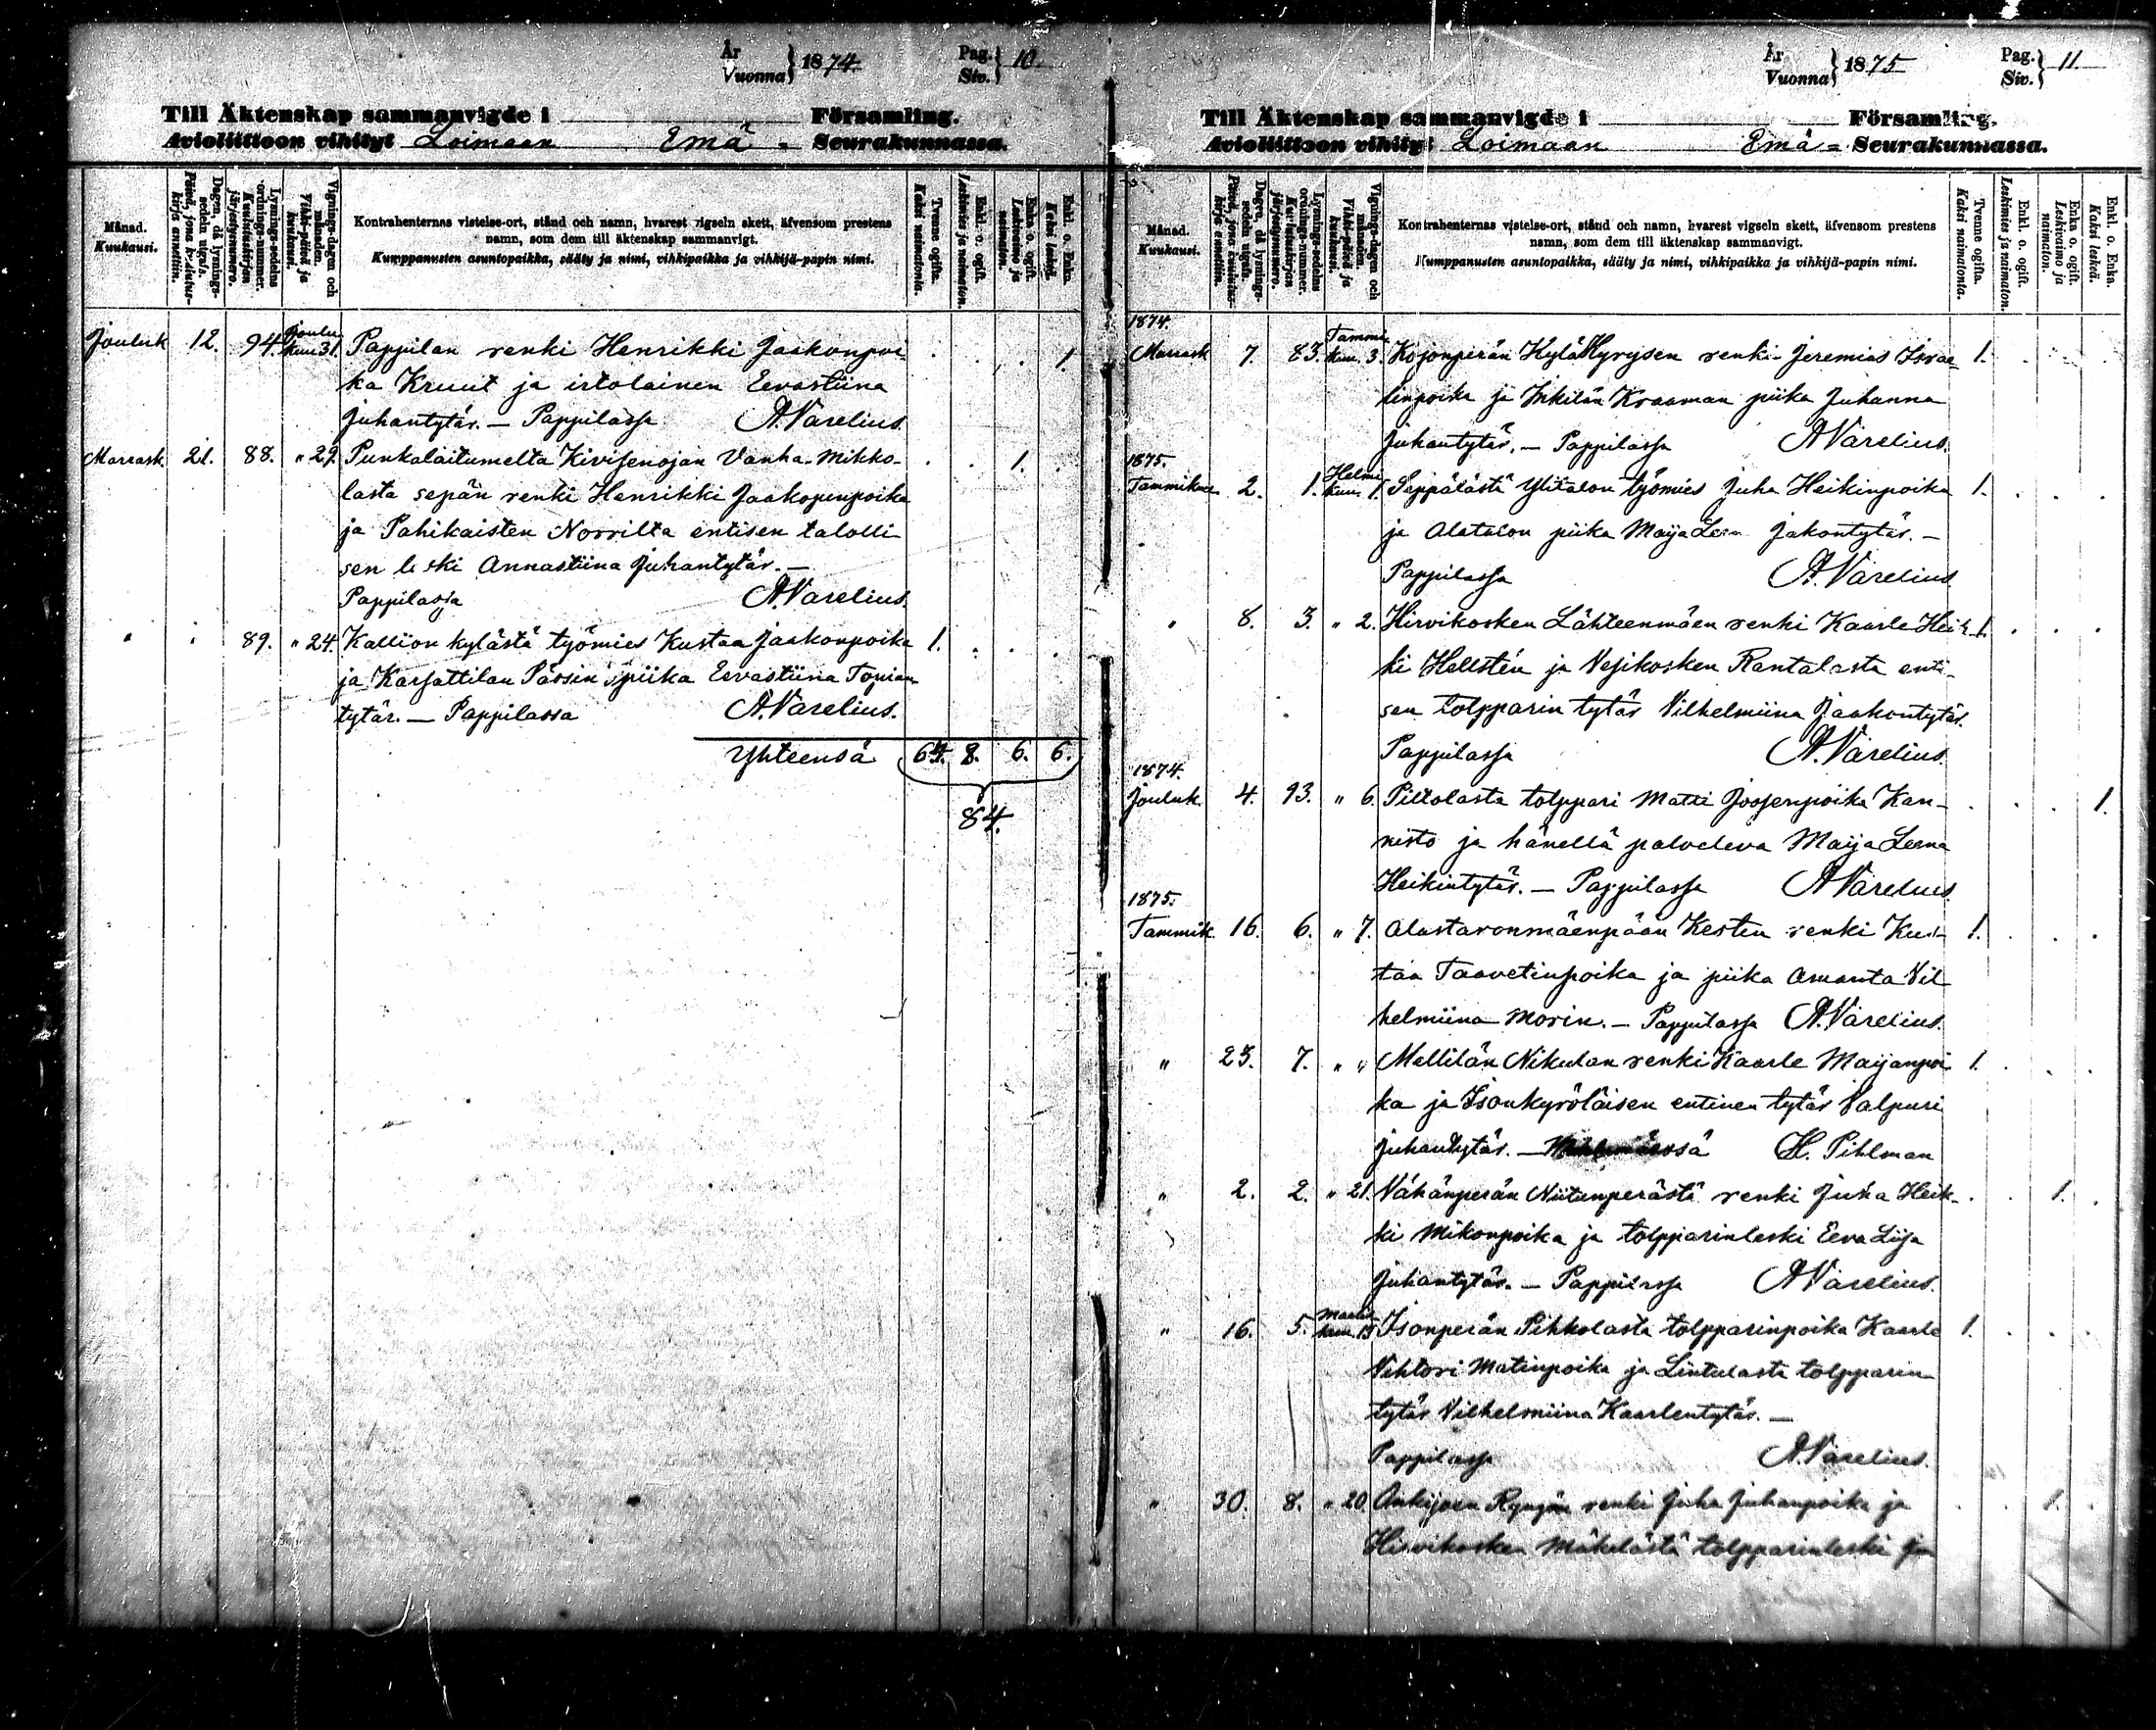 År
Vuonna } 1874.
Pag.
Siv. } 10.
Till Äktenskap sammanvigde i Församling.
Avioliittoon vihityt Loimaan Emä = Seurakunnassa.
Månad. Kuukausi.
Dagen, då lysnings-sedeln utgafs. Päivä, jona kuulutus-kirja annettiin.
Lysnings-sedelns ordnings-nummer. Kuulutuskirjan järjestysnumero.
Vignings-dagen och månaden. Vihki-päivä ja kuukausi.
Kontrahenternas vistelse-ort, stånd och namn, hvarest vigseln skett, äfvensom prestens
namn, som dem till äktenskap sammanvigt.
Kumppanusten asuntopaikka, sääty ja nimi, vihkipaikka ja vihkijä-papin nimi.
Tvenne ogifta. Kaksi naimatonta.
Enkl. o. ogift. Leskimies ja naimaton.
Enka o. ogift. Leskivaimo ja naimaton.
Enkl. o. Enka. Kaksi leskeä.
Jouluk 12. 94. Joulu kuu 31. Pappilan renki Henrikki Jaakonpoi 1
ka Kruut ja irtolainen Eevastiina
Juhantytär. — Pappilassa A. Varelius.
Marrask. 21. 88. " 29. Punkalaitumelta Kivisenojan Vanha-Mikko- 1.
lasta sepän renki Henrikki Jaakopenpoika
ja Pahikaisten Norrilta entisen talolli
sen leski Annastiina Juhantytär. —
Pappilassa A. Varelius.
" " 89. " 24. Kallion kylästä työmies Kustaa Jaakonpoika 1.
ja Karsattilan Pässin piika Eevastiina Topian
tytär. — Pappilassa A. Varelius.
Yhteensä 64. 8. 6. 6.
84.
År
Vuonna } 1875
Pag.
Siv. } 11.
Till Äktenskap sammanvigde i Församling.
Avioliittoon vihityt Loimaan Emä = Seurakunnassa.
Månad. Kuukausi.
Dagen, då lysnings-sedeln utgafs. Päivä, jona kuulutus-kirja annettiin.
Lysnings-sedelns ordnings-nummer. Kuulutuskirjan järjestysnumero.
Vignings-dagen och månaden. Vihki-päivä ja kuukausi.
Kontrahenternas vistelse-ort, stånd och namn, hvarest vigseln skett, äfvensom prestens
namn, som dem till äktenskap sammanvigt.
Kumppanusten asuntopaikka, sääty ja nimi, vihkipaikka ja vihkijä-papin nimi.
Tvenne ogifta. Kaksi naimatonta.
Enkl. o. ogift. Leskimies ja naimaton.
Enka o. ogift. Leskivaimo ja naimaton.
Enkl. o. Enka. Kaksi leskeä.
1874.
Marrask 7. 83. Tammi kuu. 3. Kojonperän Kylä Hyrysen renki Jeremias Israe 1.
linpoika ja Inkilän Kraaman piika Juhanna
Juhantytär. — Pappilassa A Varelius.
1875.
Tammikuu 2. 1. Helmi kuu 1. Seppälästä Ylitalon työmies Juha Heikinpoika 1.
ja Alatalon piika Maija Leena Jakontytär. —
Pappilassa A. Varelius.
" 8. 3. " 2. Hirvikosken Lähteenmäen renki Kaarle Heik 1.
ki Hellstén ja Vesikosken Rantalasta enti
sen tolpparin tytär Vilhelmiina Jaakontytär.
Pappilassa A. Varelius.
1874.
Jouluk. 4. 93. " 6. Piltolasta tolppari Matti Joosenpoika Kan- 1.
nisto ja hänellä palveleva Maija Leena
Heikintytär. — Pappilassa A Varelius
1875.
Tammik. 16. 6. " 7. Alastaronmäenpään Kestin renki Kus 1.
taa Taavetinpoika ja piika Amanta Vil
helmiina Morin. — Pappilassa A. Varelius.
" 23. 7. " " Mellilän Nikulan renki Kaarle Maijanpoi 1.
ka ja Isonkyröläisen entinen tytär Valpuri
Juhantytär. — H. Pihlman
" 2. 2. " 21. Vähänperän Niitunperästä renki Juha Heik- 1.
ki Mikonpoika ja tolpparinleski Eeva Liisa
Juhantytär. — Pappilassa A Varelius.
" 16. 5. Maalis kuu. 15 Isonperän Pihkolasta tolpparinpoika Kaarle 1.
Vihtori Matinpoika ja Lintulasta tolpparin
tytär Vilhelmiina Kaarlentytär. —
Pappilassa A. Varelius.
" 30. 8. " 20. renki Juha Juhanpoika ja 1.
Hirvikosken Mäkelästä tolpparinleski